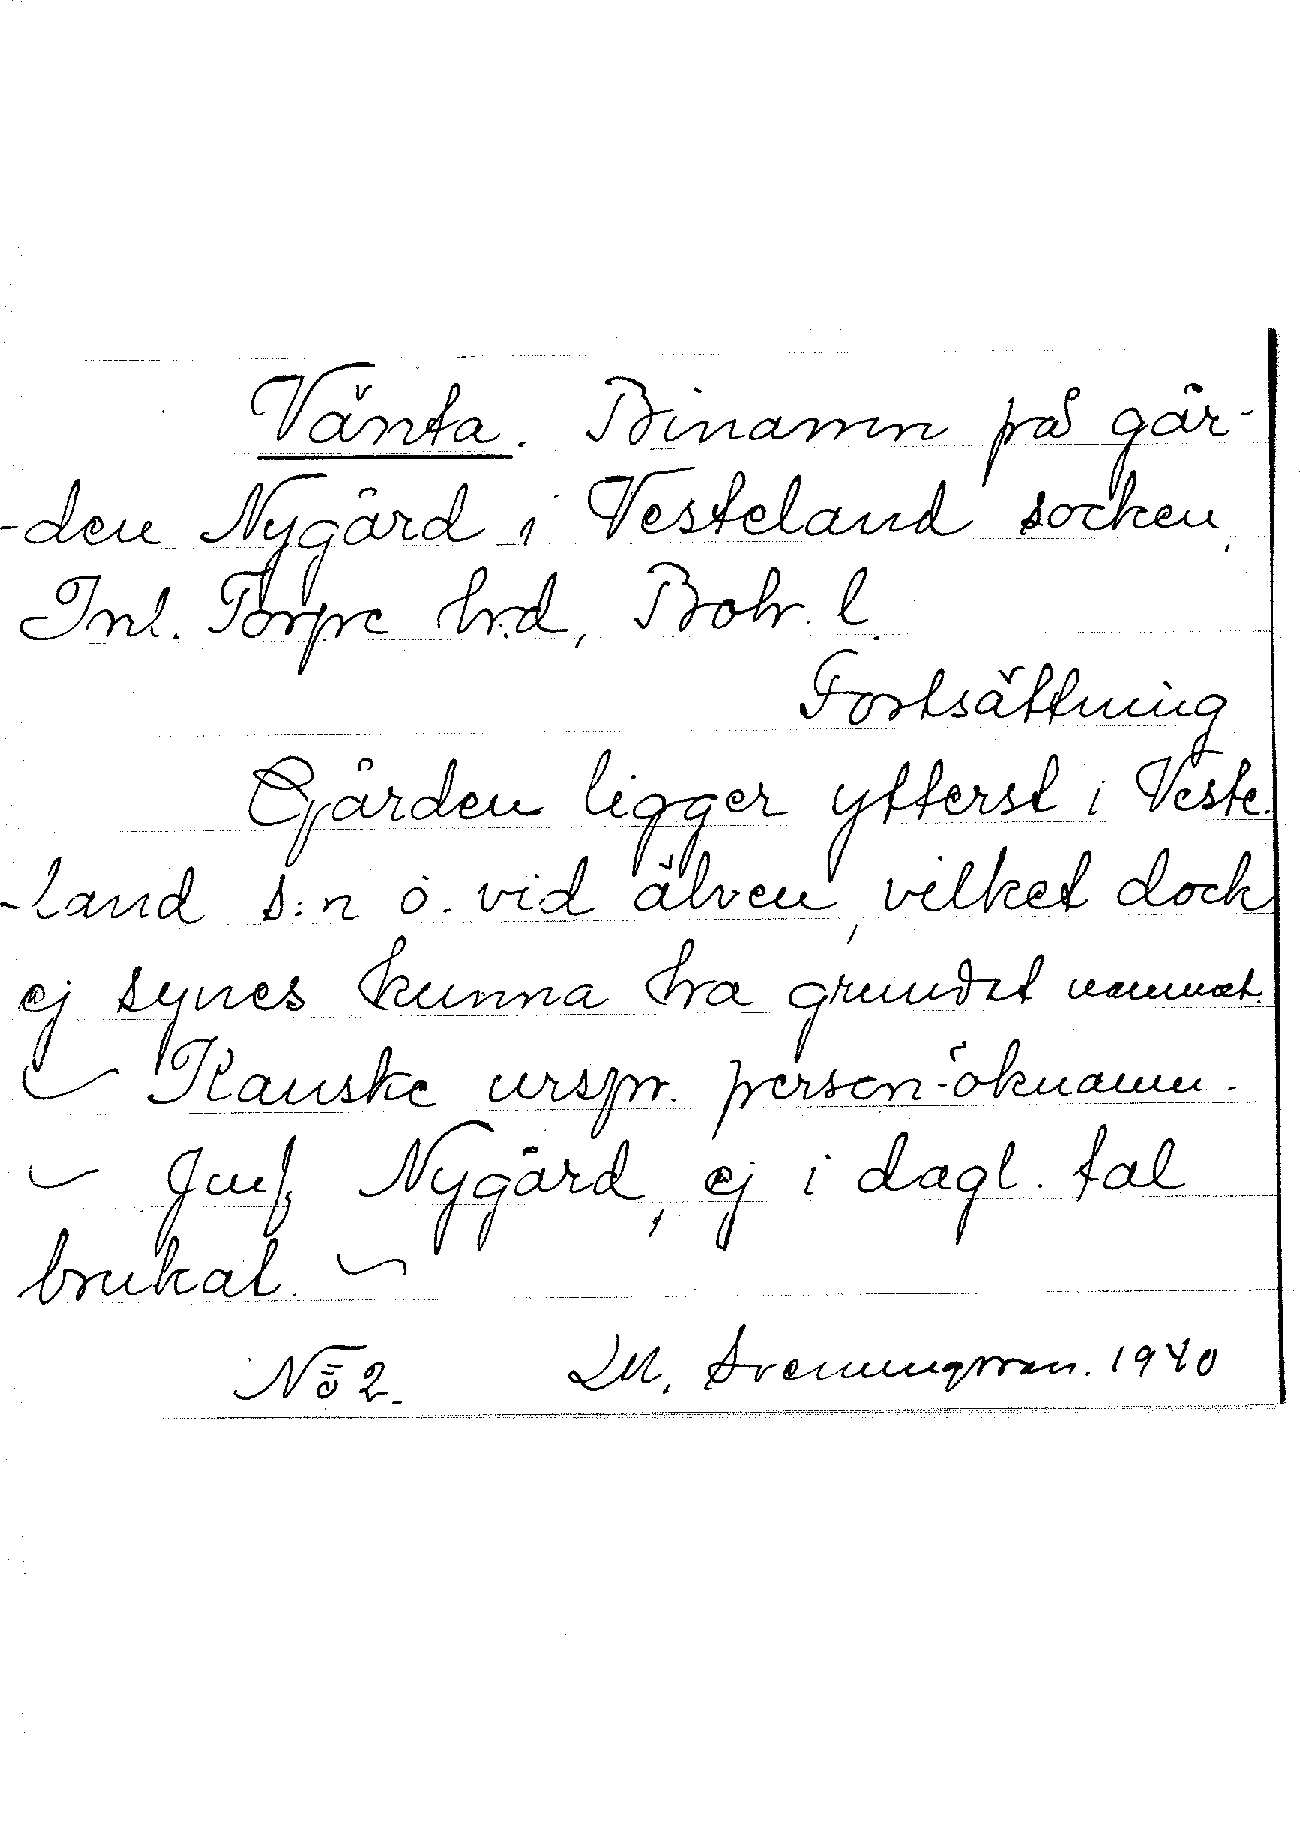 Vänta. Binamn på går-
-den Nygård i Vesteland socken,
Inl. Torpe hrd, Boh. l.
Fortsättning
Gården ligger ytterst i Veste-
-land s:n ö. vid älven, vilket dock
ej synes kunna ha grundat namnet.
– Kanske urspr. person-öknamn.
– Jmf. Nygård, ej i dagl. tal
brukat. –
No 2. D. M. Svenningsson. 1940